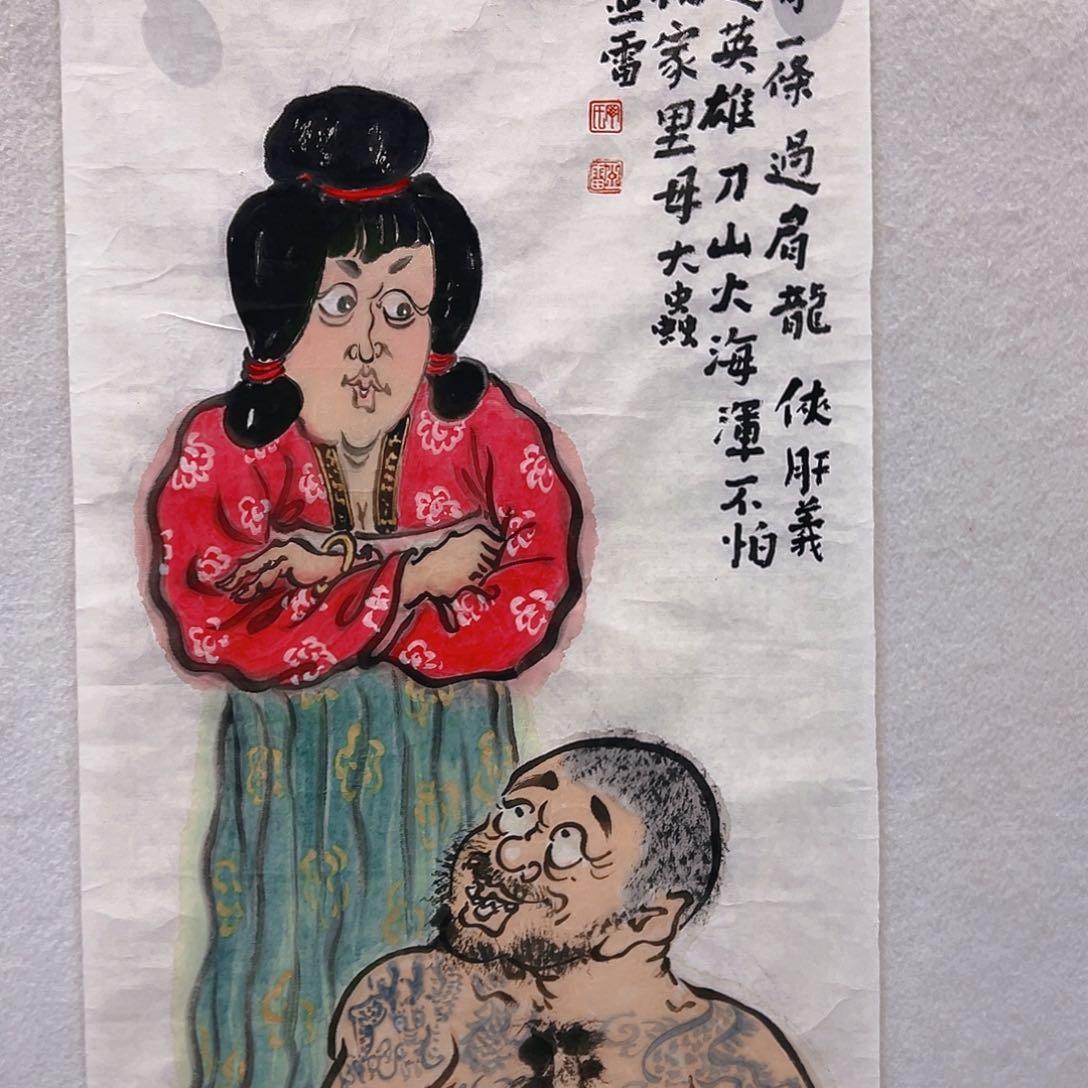 一條 過肩龍 俠肝義
英雄 刀山火海渾不怕
家里母大蟲
雷